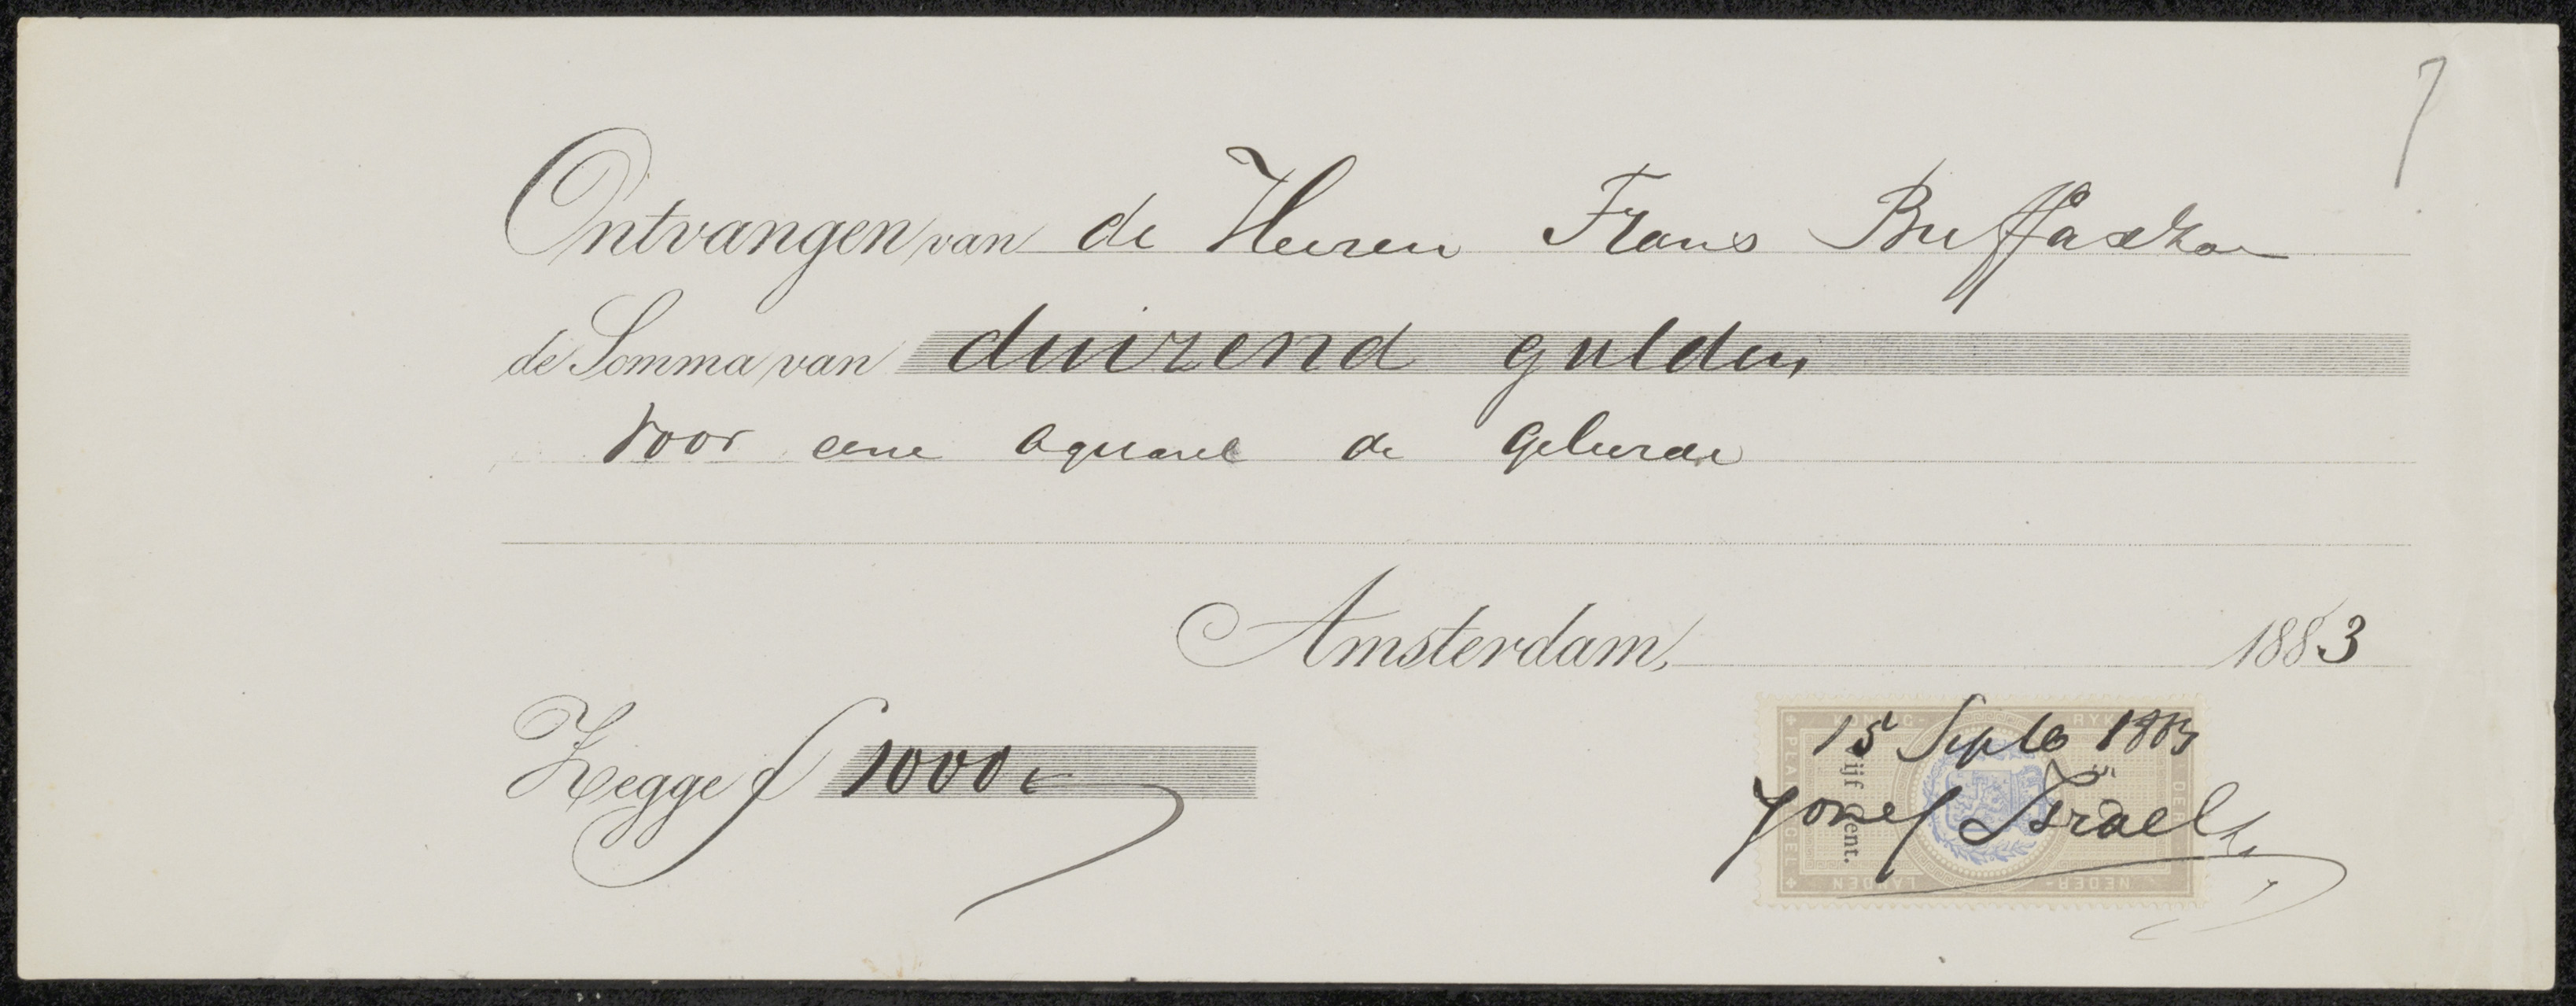 Ontvangen van de Heeren Frans Buffa & Zn
de Somma van duizend gulden
voor eene aquarel de
Amsterdam, 1883
Zegge f 1000 -
15 Septb 1883
Jozef Israels
KONING- RYK DER NEDER- LANDEN PLAKZEGEL
Vijf Cent.